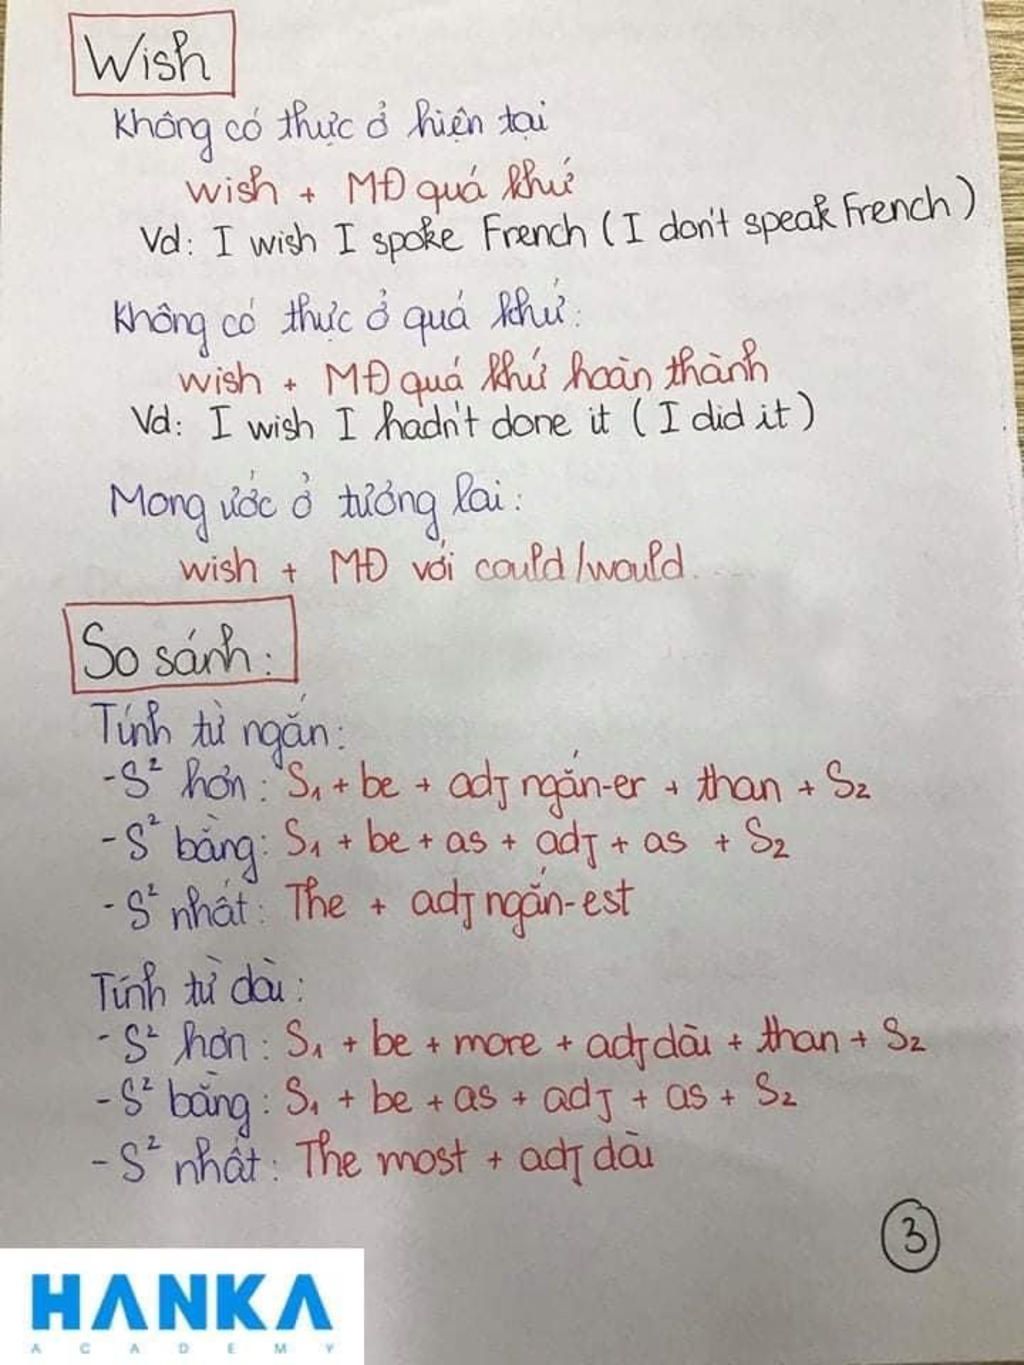 Wish
Không có thực ở hiện tại
wish + MĐ quá khứ
Vd: I wish I spoke French (I don't speak French)
Không có thực ở quá khứ:
wish + MĐ quá khứ hoàn thành
Vd: I wish I hadn't done it (I did it)
Mong ước ở tương lai:
wish + MĐ với could/would
So sánh:
Tính từ ngắn:
-S² hơn: S₁ + be + adj ngắn-er + than + S₂
-S² bằng: S₁ + be + as + adj + as + S₂
-S² nhất: The + adj ngắn-est
Tính từ dài:
-S² hơn: S₁ + be + more + adj dài + than + S₂
-S² bằng: S₁ + be + as + adj + as + S₂
-S² nhất: The most + adj dài
3
HANKA
ACADEMY